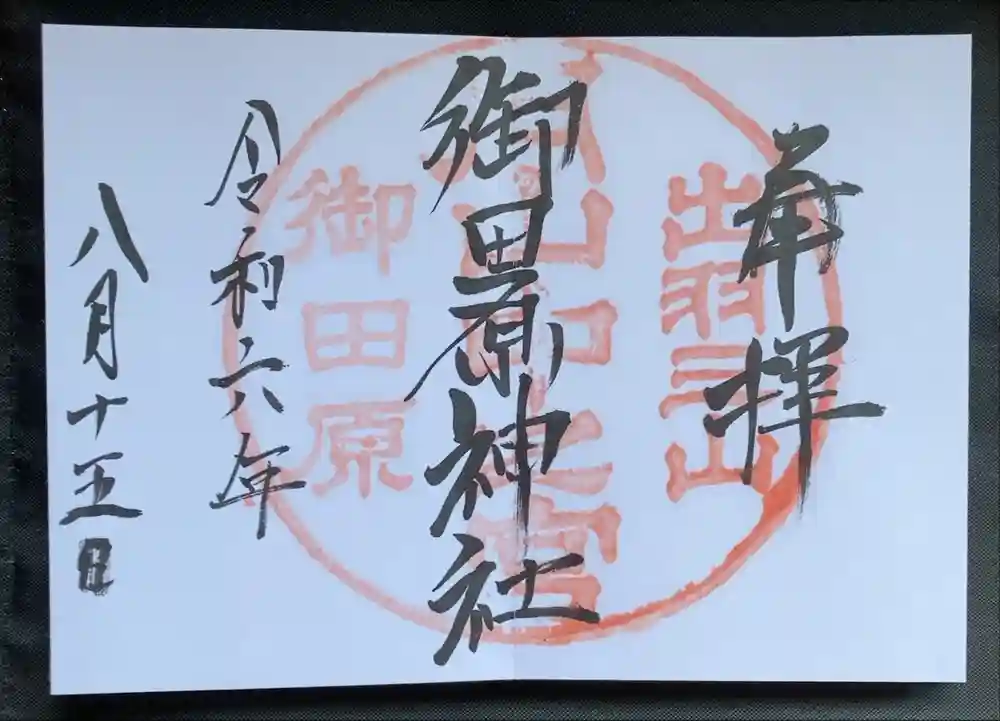 奉拝
御田原神社
令和六年
八月十五日
出羽三山
月山中之宮
御田原